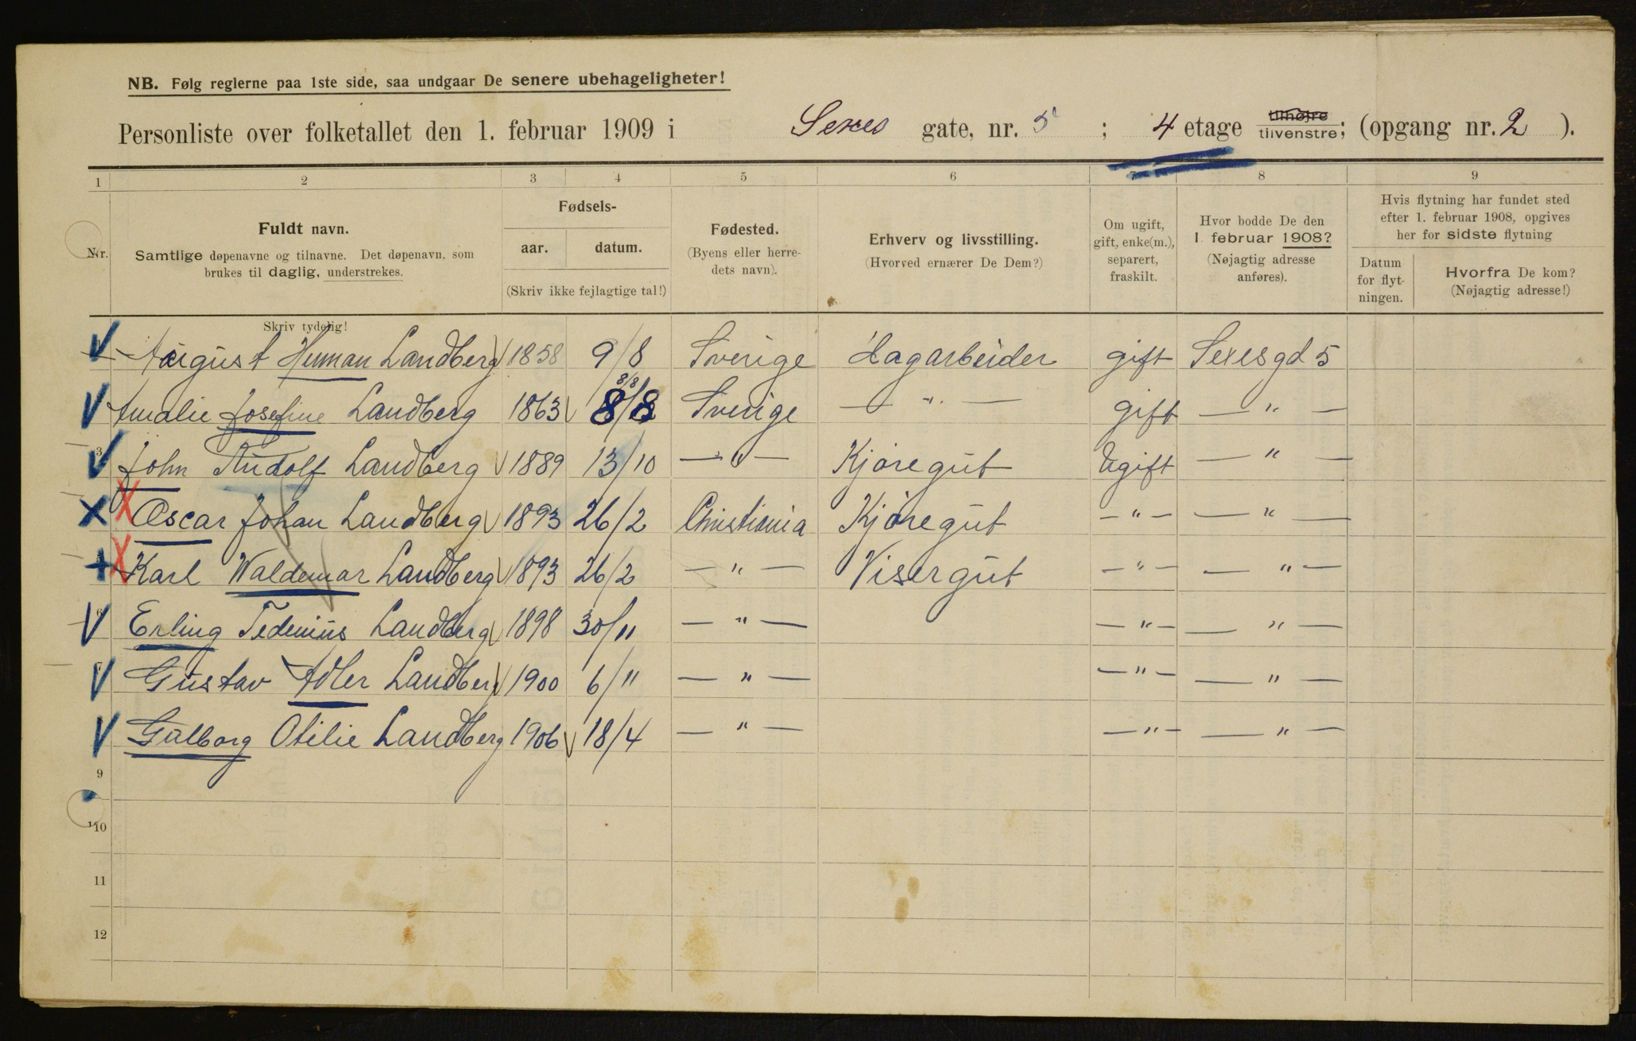 NB. Følg reglerne paa 1ste side, saa undgaar De senere ubehageligheter!
Personliste over folketallet den 1. februar 1909 i Sexes gate, nr. 5 ; 4 etage tilhøjre tilvenstre; (opgang nr. 2 ).
1 2 3 4 5 6 7 8 9
Nr.
Fuldt navn.
Samtlige døpenavne og tilnavne. Det døpenavn, som
brukes til daglig, understrekes.
Skriv tydelig!
Fødsels-
aar. datum.
(Skriv ikke fejlagtige tal!)
Fødested.
(Byens eller herre-
dets navn).
Erhverv og livsstilling.
(Hvorved ernærer De Dem?)
Om ugift,
gift, enke(m.),
separert,
fraskilt.
Hvor bodde De den
1. februar 1908?
(Nøjagtig adresse
anføres).
Hvis flytning har fundet sted
efter 1. februar 1908, opgives
her for sidste flytning
Datum
for flyt-
ningen.
Hvorfra De kom?
(Nøjagtig adresse!)
August Herman Landberg 1858 9/8 Sverige Dagarbeider gift Sexesgd 5
8/8
Amalie Josefine Landberg 1863 8/8 Sverige — " — gift — " —
3 John Rudolf Landberg 1889 13/10 — " — Kjøregut Ugift — " —
Oscar Johan Landberg 1893 26/2 Christiania Kjøregut — " — — " —
Karl Waldemar Landberg 1893 26/2 — " — Visergut — " — — " —
6 Erling Tedenius Landberg 1898 30/11 — " — — " — — " —
Gustav Adler Landberg 1900 6/11 — " — — " — — " —
Gulborg Otilie Landberg 1906 18/4 — " — — " — — " —
9
10
11
12